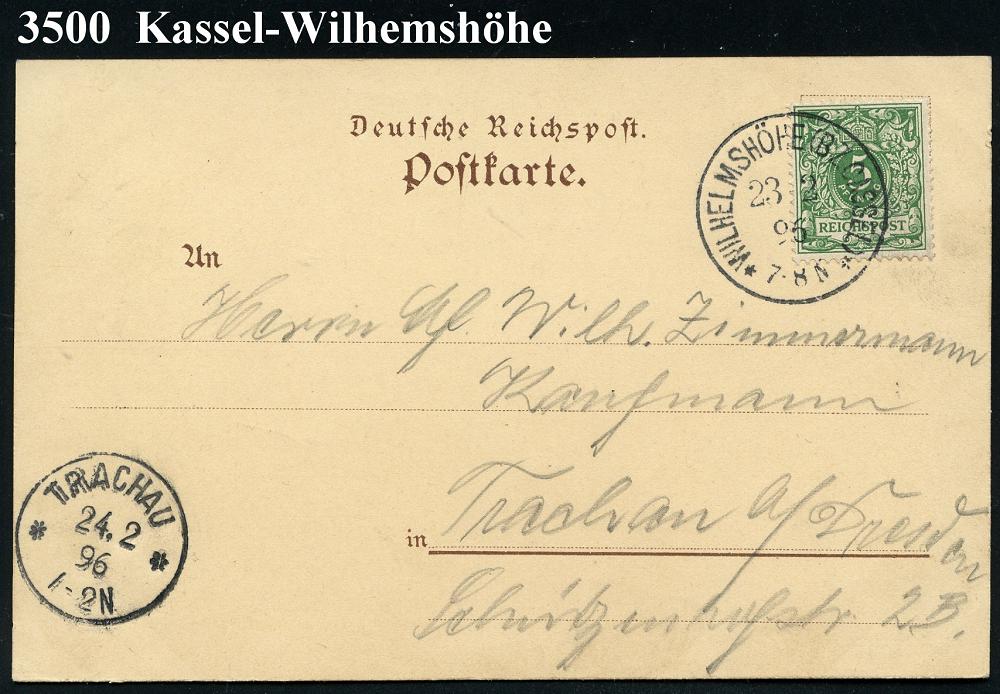 3500 Kassel-Wilhemshöhe
Deutsche Reichspost.
Postkarte.
WILHELMSHÖHE (BZ. CASSEL)
23 2
96
7-8N
5
REICHSPOST
An
Herrn Wilh. Zimmermann
Kaufmann
in Trachau a/Dresden
2B.
TRACHAU
24.2
96
1-2N